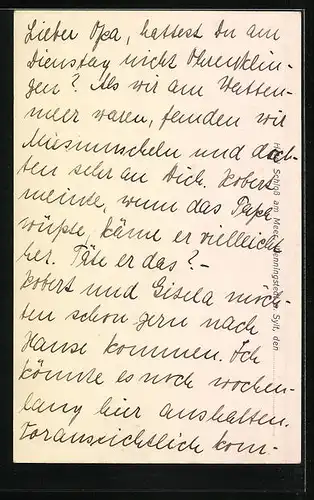 Lieber Opa, hattest Du am
Dienstag nicht Ohrenklin-
gen? Als wir am Watten-
meer waren, fanden wir
Miesmuscheln und dach-
ten sehr an Dich. Robert
meinte, wenn das Papa
wüßte, käme er vielleicht
her. Täte er das? -
Robert und Gisela möch-
ten schon gern nach
Hause kommen. Ich
könnte es noch wochen-
lang hier aushalten.
Voraussichtlich kom-
Schloß am Meer, Wenningstedt Sylt, den